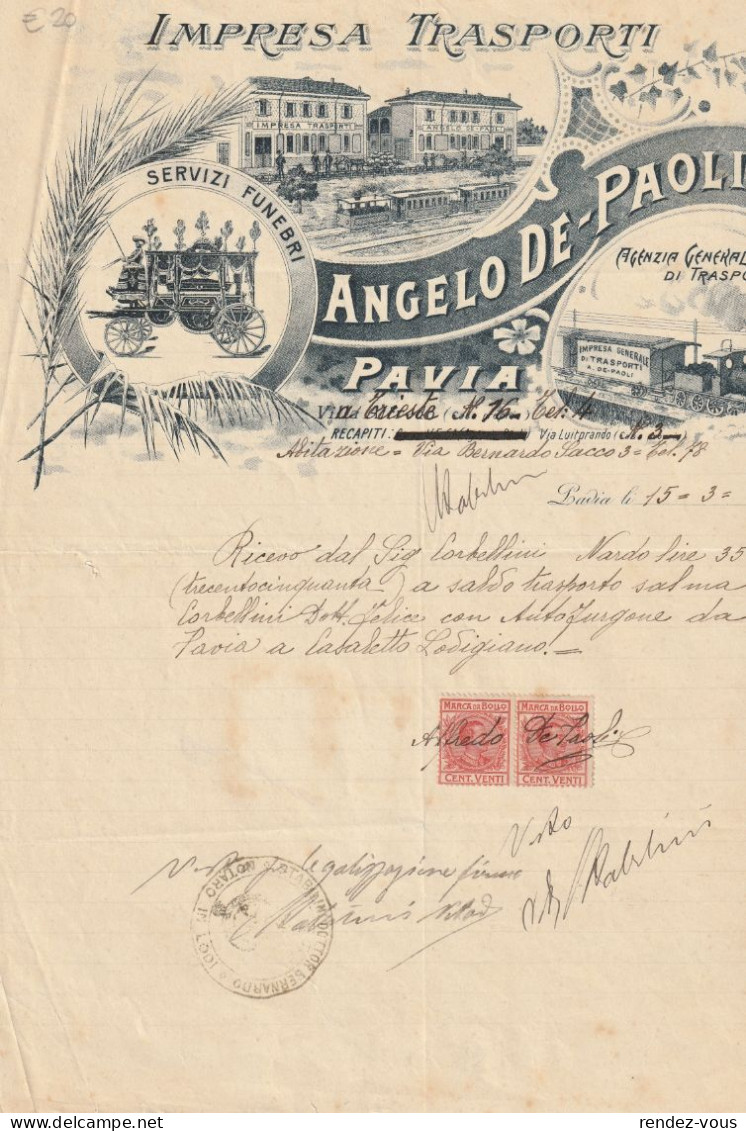 € 20
IMPRESA TRASPORTI
IMPRESA TRASPORTI
ANGELO DE-PAOLI
SERVIZI FUNEBRI
ANGELO DE-PAOLI
AGENZIA GENERAL
DI TRASPO
IMPRESA GENERALE
DI TRASPORTI
A. DE-PAOLI
PAVIA
Via Trieste (N. 16) Tel. 4
RECAPITI: Via Luitprando (N. 3)
Abitazione = Via Bernardo Sacco 3 = Tel. 78
Pavia li 15 = 3 =
Ricevo dal Sig Corbellini Nardo lire 35
(trecentocinquanta) a saldo trasporto salma
Corbellini Dott. Felice con Autofurgone da
Pavia a Casaletto Lodigiano. =
MARCA DA BOLLO MARCA DA BOLLO
Alfredo De Paoli
CENT. VENTI CENT. VENTI
Visto
legalizzazione firma
DOTTOR BERNARDO NOTARO IN LODI
rendez-vous